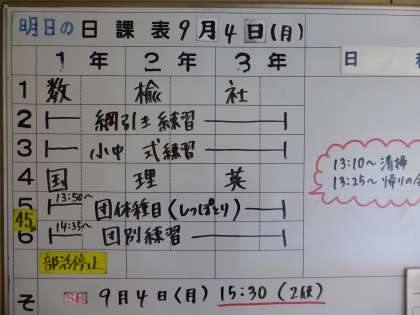 明日の日課表 9月4日(月)
1年 2年 3年 日
1 数 楡 社
2 綱引き練習
3 小中 式練習
4 国 理 英
13:10〜 清掃
13:25〜 帰りの会
5 13:50〜 団体種目(しっぽとり)
45
6 14:35〜 団別練習
部活停止
そ SB 9月4日(月) 15:30 (2便)